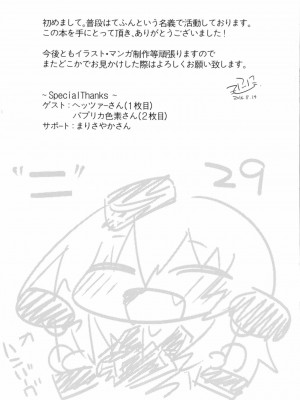 初めまして。普段はてふんという名義で活動しております。
この本を手にとって頂き、ありがとうございました！
今後ともイラスト・マンガ制作等頑張りますので
またどこかでお見かけした際はよろしくお願い致します。
2016.8.14
~SpecialThanks~
ゲスト：ヘッツァーさん(1枚目)
パプリカ色素さん(2枚目)
サポート：まりさやかさん
29